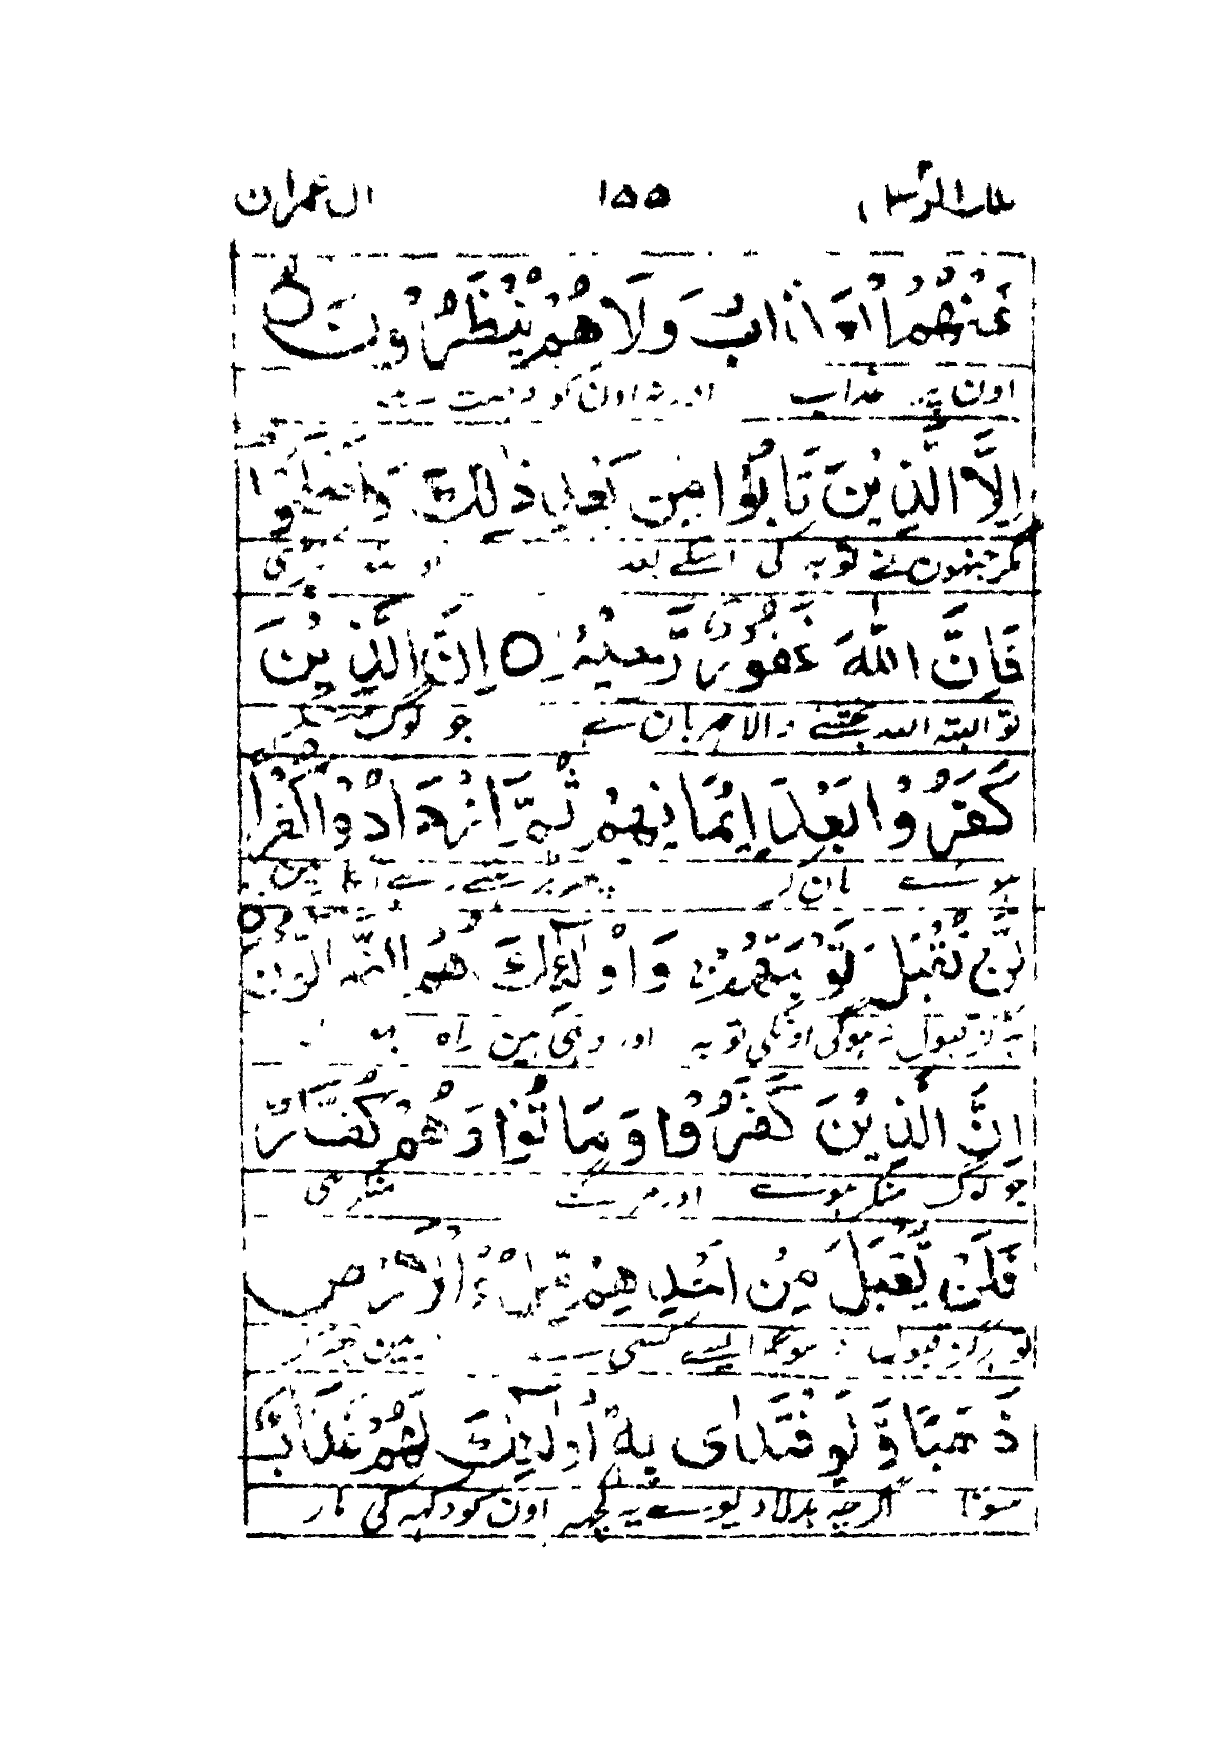 تلك الرسل ٣ ١٥٥ ال عمران
عَنْهُمُ الْعَذَابُ وَلَا هُمْ يُنْظَرُونَ
اون پر عذاب اور نہ اون کو
اِلَّا الَّذِيْنَ تَابُوْا مِنْ بَعْدِ ذٰلِكَ وَاَصْلَحُوْا
مگر جنہون نے توبہ کی اسکے بعد اور
فَاِنَّ اللّٰهَ غَفُوْرٌ رَّحِيْمٌ اِنَّ الَّذِيْنَ
تو البتہ اللہ بخشنے والا مہربان ہے جو لوگ
كَفَرُوْا بَعْدَ اِيْمَانِهِمْ ثُمَّ ازْدَادُوْا كُفْرًا
مان کر پھر بڑھتے رہے انکار مین
لَّنْ تُقْبَلَ تَوْبَتُهُمْ وَاُولٰٓئِكَ هُمُ الضَّآلُّوْنَ
ہرگز قبول نہ ہوگی اونکی توبہ اور وہی ہین راہ
اِنَّ الَّذِيْنَ كَفَرُوْا وَمَاتُوْا وَهُمْ كُفَّارٌ
جو لوگ منکر ہوے اور مر گئے منکر ہی
فَلَنْ يُّقْبَلَ مِنْ اَحَدِهِمْ مِّلْءُ الْاَرْضِ
تو ہرگز قبول نہ ہوگا ایسے کسی سے زمین بھر کر
ذَهَبًا وَّلَوِ افْتَدٰى بِهٖ اُولٰٓئِكَ لَهُمْ عَذَابٌ
سونا اگرچہ بدلا دیوے یہ کچہہ اون کو دکہہ کی مار